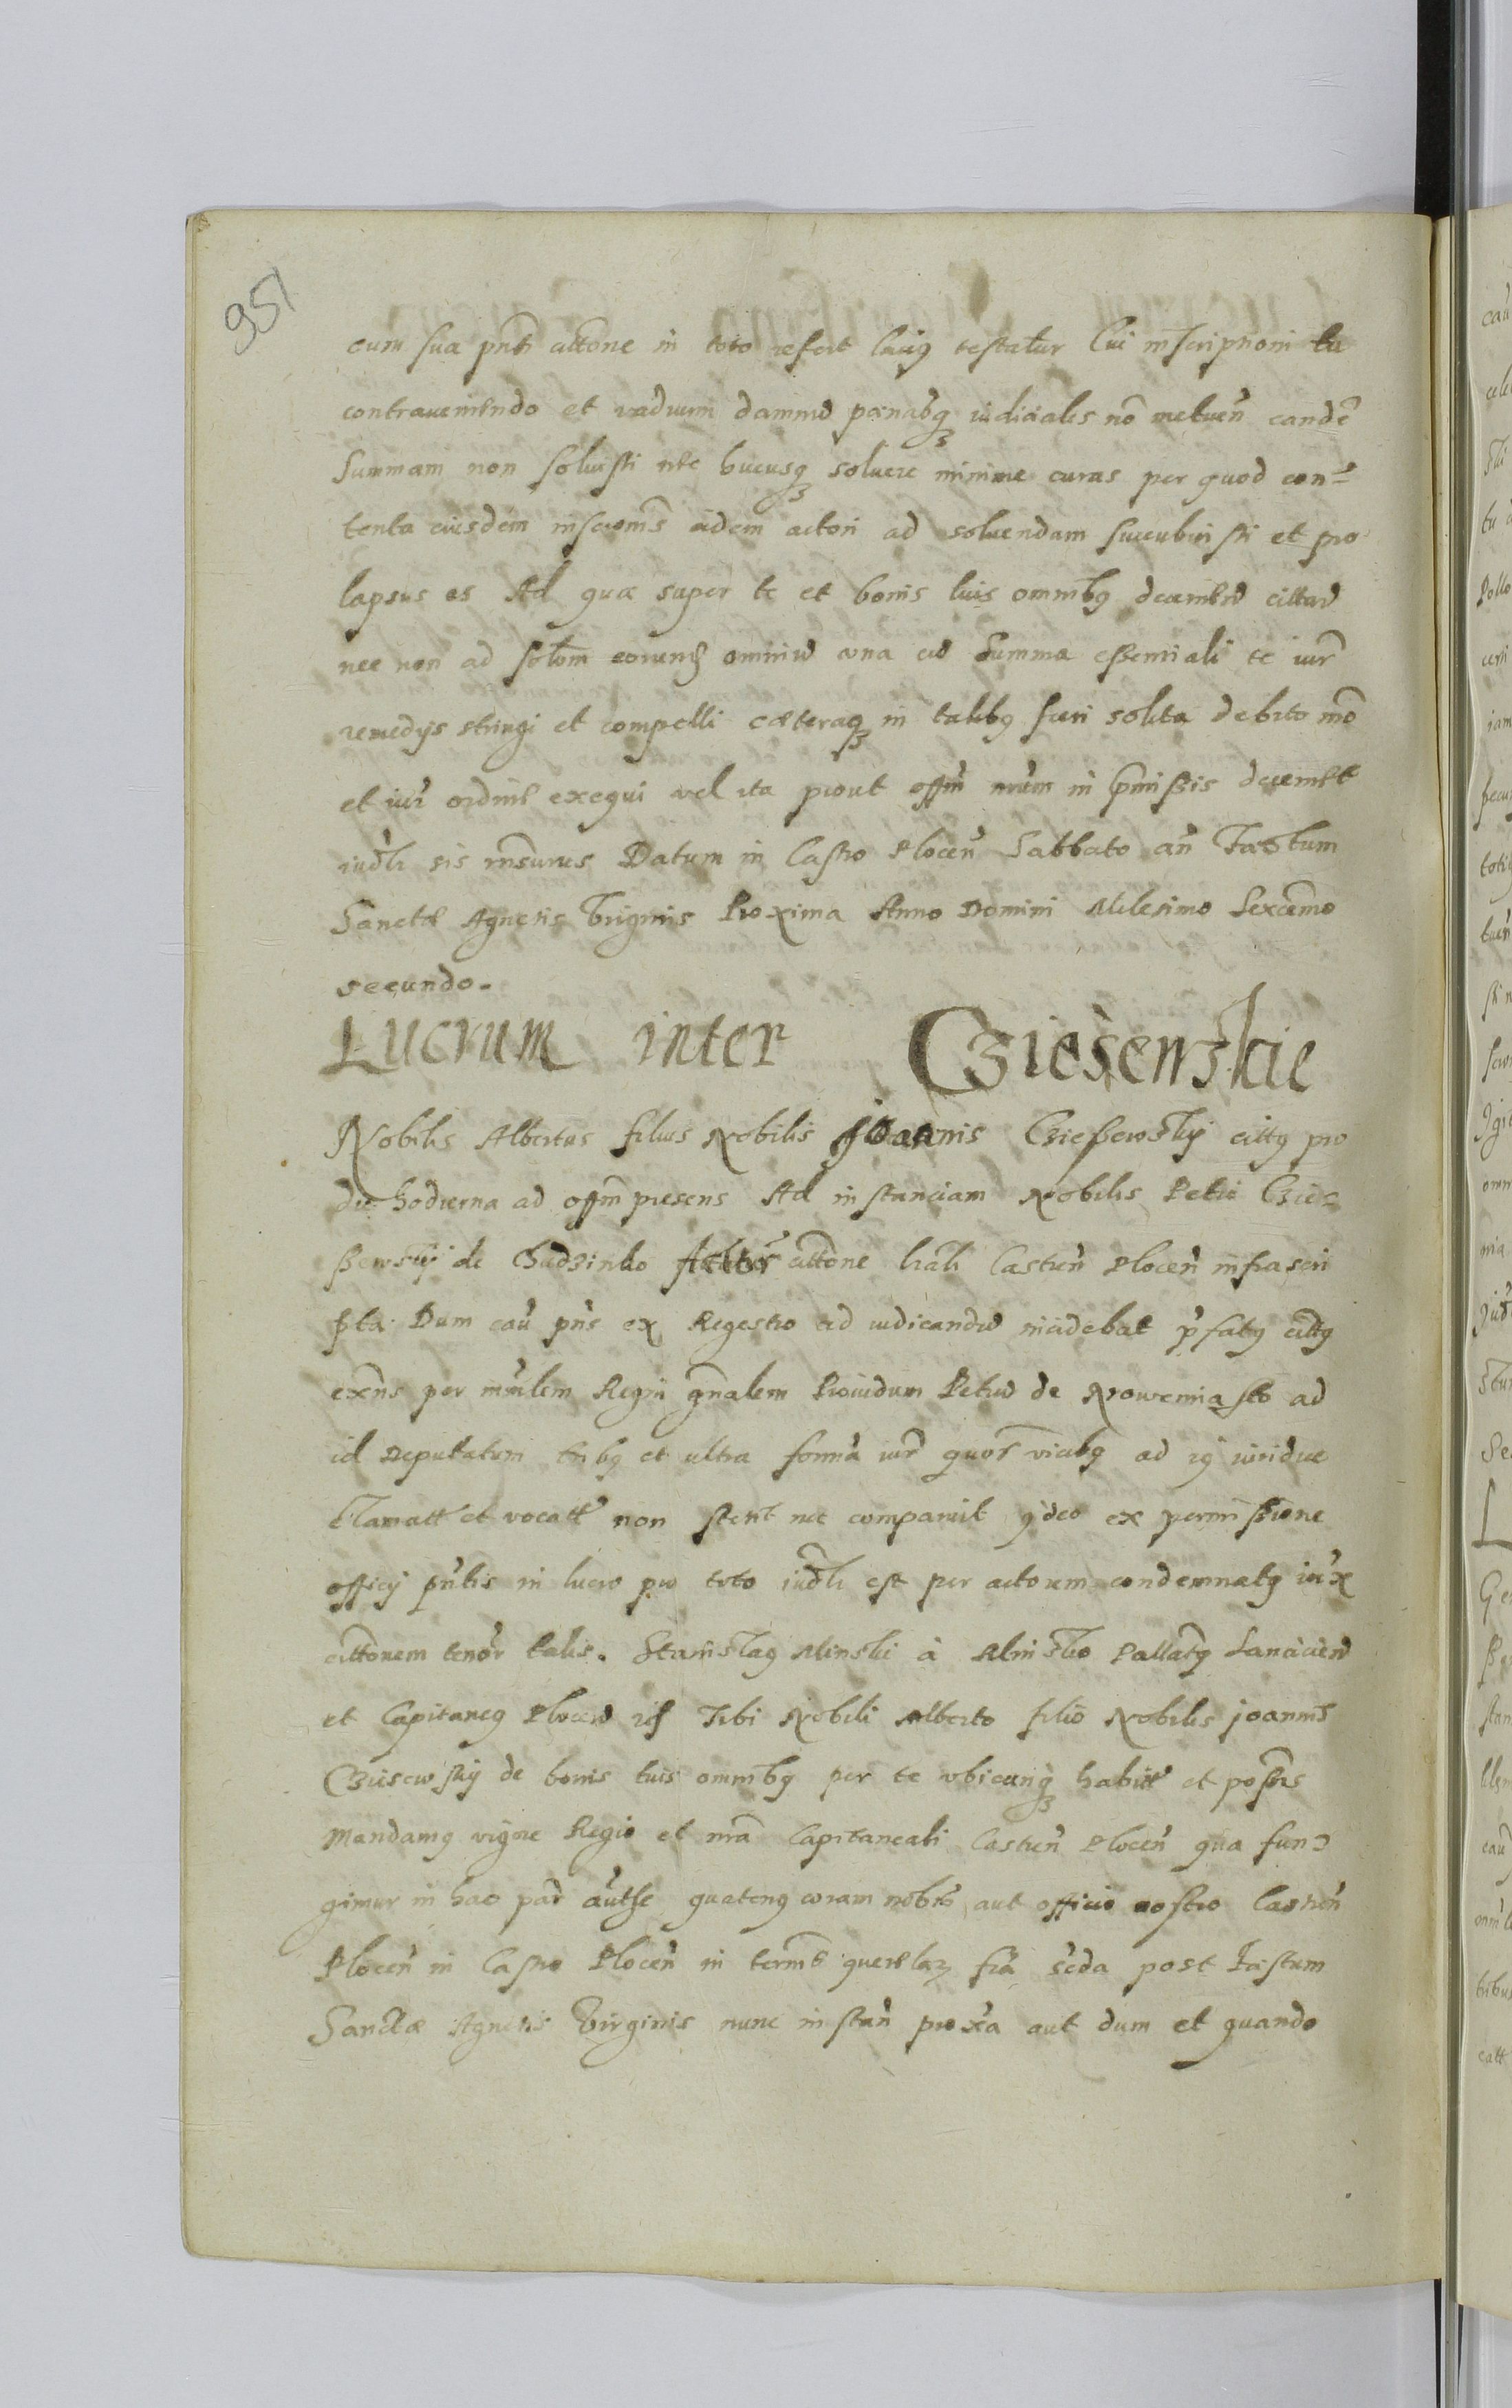 951
cum sua pnti cittone in toto refert laciusq testatur Cui inscriptioni tu
contraueniendo et vadium damna pœnasq iudiciales nõ metuen̄ eandẽ
Summam non soluisti nec hucusq soluere minime curas per quod con-
tenta eiusdem inscrioms eidem actori ad soluendam succubuisti et pro
lapsus es Ad quæ super te et bonis tuis omnibq decernend cittand
nec non ad solom eorund omniũ vna cũ Summa essentiali te iur
remedijs stringi et compelli cæteraq in talibq fieri solita debito mõ
et iur ordine exequi vel ita prout offm nrum in pmissis decernet
iudlr sis rnsurus Datum in Castro Plocen Sabbato an Fæstum
Sanctæ Agnetis Virginis Proxima Anno Domini Milesimo Sexcemo
secundo.
Lucrum inter Cziesewskie
Nobilis Albertus filius Nobilis Joannis Czieszewskij cittq pro
die hodierna ad offm presens Ad instanciam Nobilis Petri Czie-
szewskij de Chudzinko Actor cittone lrali Castren Plocen infrascri
pta Dum cau pns ex Regestro ad iudicandũ incidebat pfatq cittq
exns per mnlem Regni gnalem Prouidum Petrũ de Nowemiasto ad
id Deputatum tribq et ultra forma iur quor vicibq ad rq iuridice
clamatt et vocatt non stetit nec comparuit ideo ex permissione
officij pntis in lucro pro toto iudlr est per actorem condemnatq iux
cittonem tenor talis. Stanislaq Minski à Minsko Pallatq Lanciciend
et Capitaneq Plocen Tibi Nobili Alberto filio Nobilis Joannis
Cziesewskij de bonis tuis omnibq per te vbicunq habitt et possis
Mandamq vigore Regio et nra Capitaneali Castren Plocen qua fun-
gimur in hac par authe quatenq coram nobis aut officio nostro Castren
Plocen in Castro Plocen in termis querelarz fra scda post Fæstum
Sanctæ Agnetis Virginis nunc instan proxa aut dum et quando